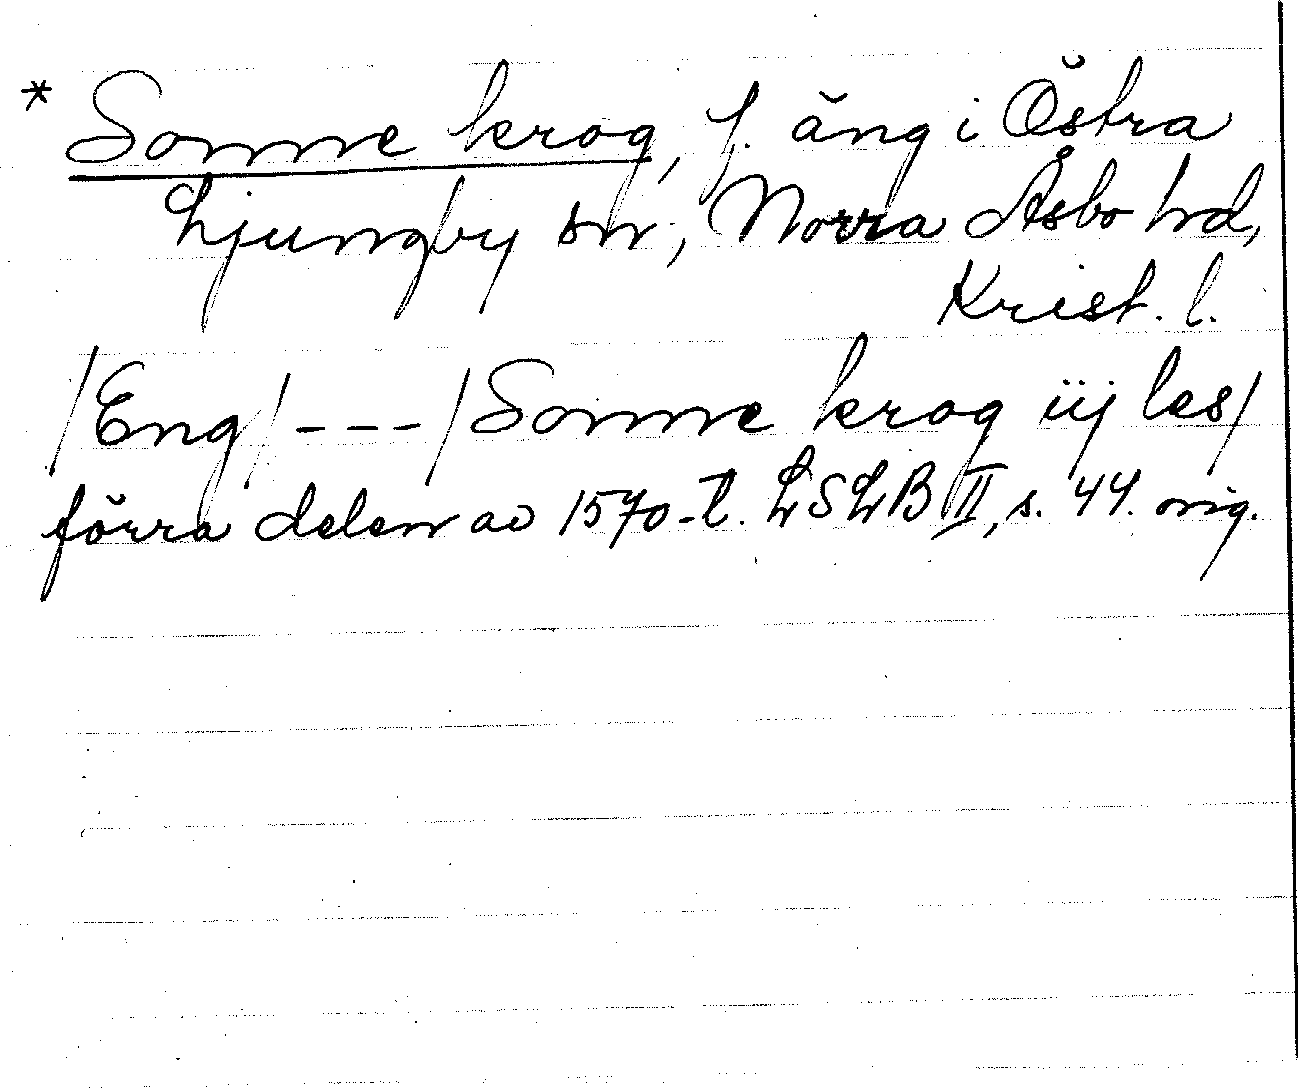 * Sonne krog, f. äng i Östra
Ljungby sn, Norra Åsbo hd,
Krist. l.
/Eng/ --- /Sonne krog iij les/
förra delen av 1570-t. LSLB II, s. 44. orig.